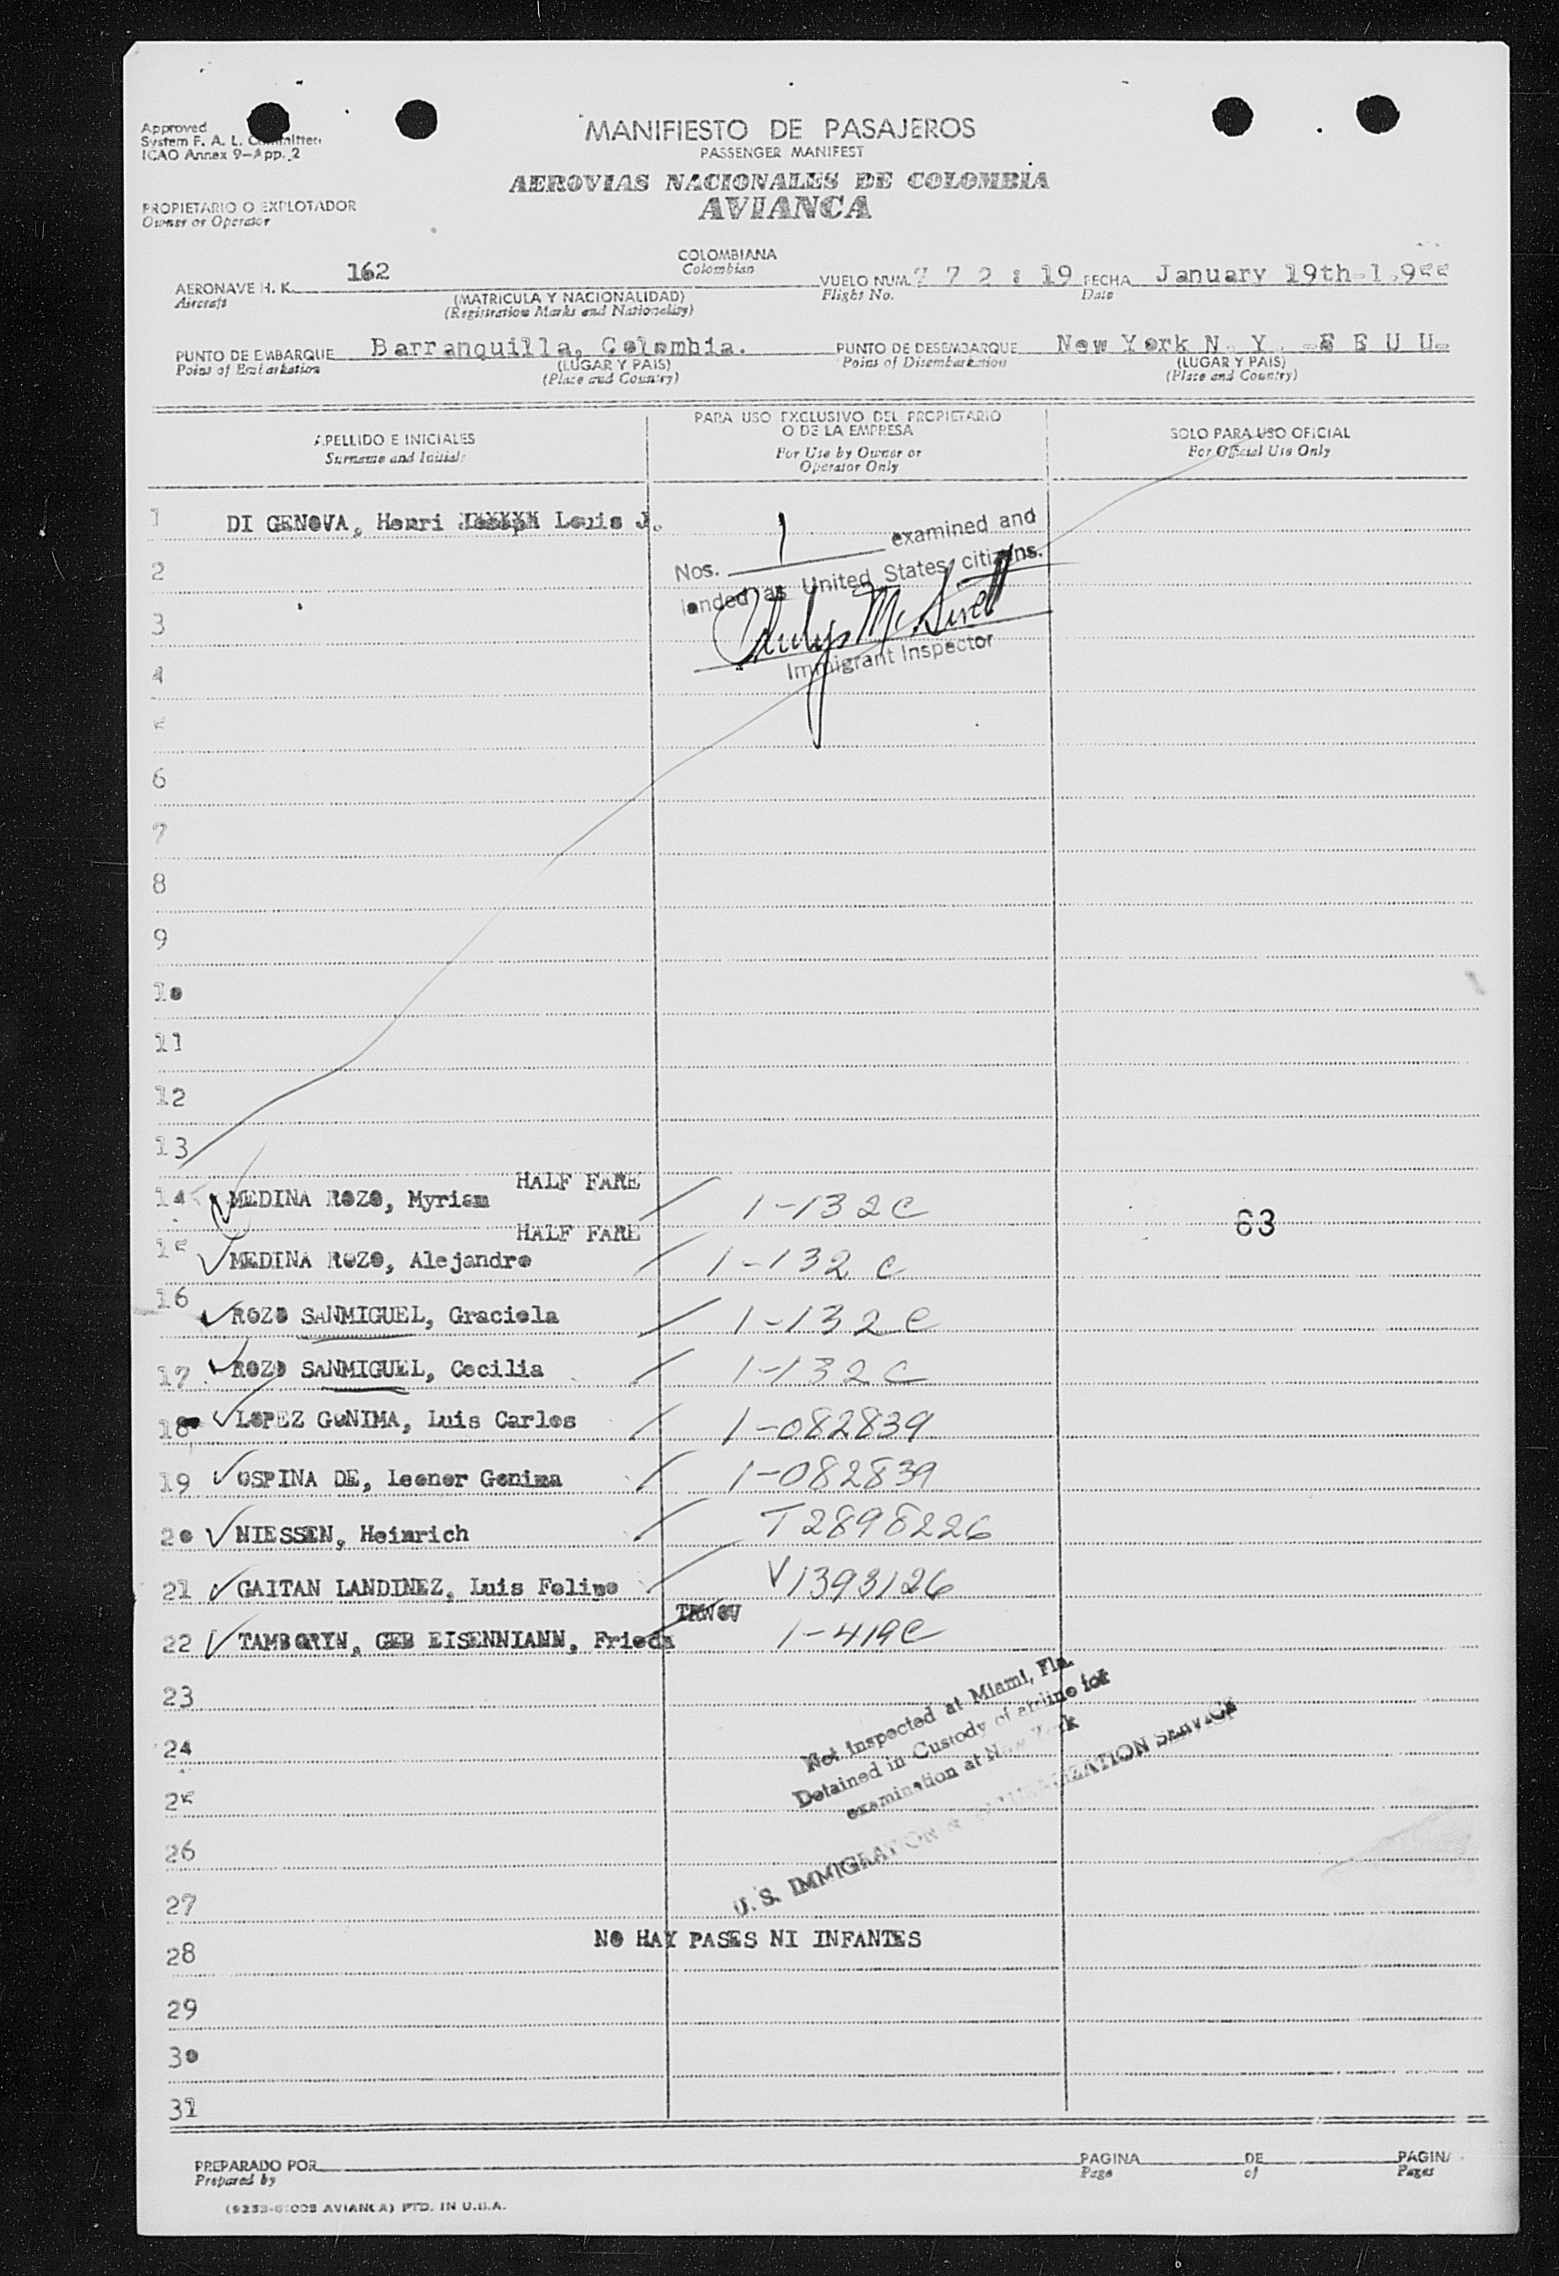 Approved
System F. A. L. Committee
ICAO Annex 9-App. 2
MANIFIESTO DE PASAJEROS
PASSENGER MANIFEST
AEROVIAS NACIONALES DE COLOMBIA
AVIANCA
PROPIETARIO O EXPLOTADOR
Owner or Operator
AERONAVE H. K. 162
Aircraft
COLOMBIANA
Colombian
(MATRICULA Y NACIONALIDAD)
(Registration Marks and Nationality)
VUELO NUM. 772:19 FECHA January 19th-1.955
Flight No. Date
PUNTO DE EMBARQUE Barranquilla, Colombia.
Point of Embarkation
(LUGAR Y PAIS)
(Place and Country)
PUNTO DE DESEMBARQUE New York N. Y. -E E U U-
Point of Disembarkation
(LUGAR Y PAIS)
(Place and Country)
APELLIDO E INICIALES
Surname and Initials
PARA USO EXCLUSIVO DEL PROPIETARIO
O DE LA EMPRESA
For Use by Owner or
Operator Only
SOLO PARA USO OFICIAL
For Official Use Only
1 DI GENOVA, Henri Louis J.
Nos. 1 examined and
landed as United States citizens.
Immigrant Inspector
2
3
4
5
6
7
8
9
10
11
12
13
HALF FARE
14 MEDINA ROZO, Myriam 1-132C
63
HALF FARE
15 MEDINA ROZO, Alejandro 1-132C
16 ROZO SANMIGUEL, Graciela 1-132C
17 ROZO SANMIGUEL, Cecilia 1-132C
18 LOPEZ GONIMA, Luis Carlos 1-082839
19 OSPINA DE, Leonor Gonima 1-082839
20 NIESSEN, Heinrich T2898226
21 GAITAN LANDINEZ, Luis Felipe V1393126
TRWOV
22 TAMBORYN, GEB EISENNIANN, Frieda 1-419C
23
24
25
26
27
28
29
30
31
Not inspected at Miami, Fla.
Detained in Custody of airline for
examination at New York
U. S. IMMIGRATION & NATURALIZATION SERVICE
NO HAY PASES NI INFANTES
PREPARADO POR
Prepared by
PAGINA DE PAGINA
Page of Pages
AVIANCA) PTD. IN U.S.A.